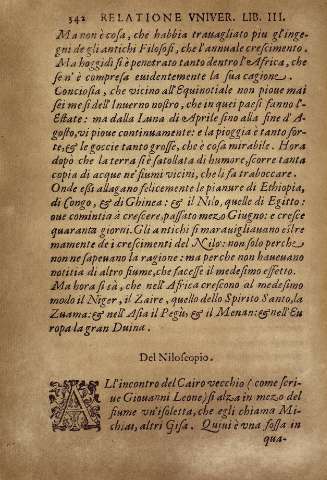 342 RELATIONE VNIVER. LIB. III.
Ma non è cosa, che habbia trauagliato piu gl'inge-
gni de gli antichi Filosofi, che l'annuale crescimento.
Ma hoggidì si è penetrato tanto dentro l'Africa, che
se n'è compresa euidentemente la sua cagione.
Conciosia, che vicino all'Equinotiale non pioue mai
sei mesi dell'Inuerno nostro, che in quei paesi fanno l'-
Estate: ma dalla Luna di Aprile sino alla fine d'A-
gosto, vi pioue continuamente: e la pioggia è tanto for-
te, & le goccie tanto grosse, che è cosa mirabile. Hora
dopò che la terra si è satollata di humore, scorre tanta
copia di acque ne' fiumi vicini, che li fa traboccare.
Onde essi allagano felicemente le pianure di Ethiopia,
di Congo, & di Ghinea: & il Nilo, quelle di Egitto:
oue comintia à crescere, passato mezo Giugno: e cresce
quaranta giorni. Gli antichi si marauigliauano estre
mamente de i crescimenti del Nilo: non solo perche
non ne sapeuano la ragione: ma perche non haueuano
notitia di altro fiume, che facesse il medesimo effetto.
Ma hora si sà, che nell'Africa crescono al medesimo
modo il Niger, il Zaire, quello dello Spirito Santo, la
Zuama: & nell'Asia il Pegù, & il Menan: & nell'Eu
ropa la gran Duina.
Del Niloscopio.
ALl'incontro del Cairo vecchio (come scri-
ue Giouanni Leone) si alza in mezo del
fiume vn'isoletta, che egli chiama Mi-
chiat, altri Gisa. Quiui è vna fossa in
qua-